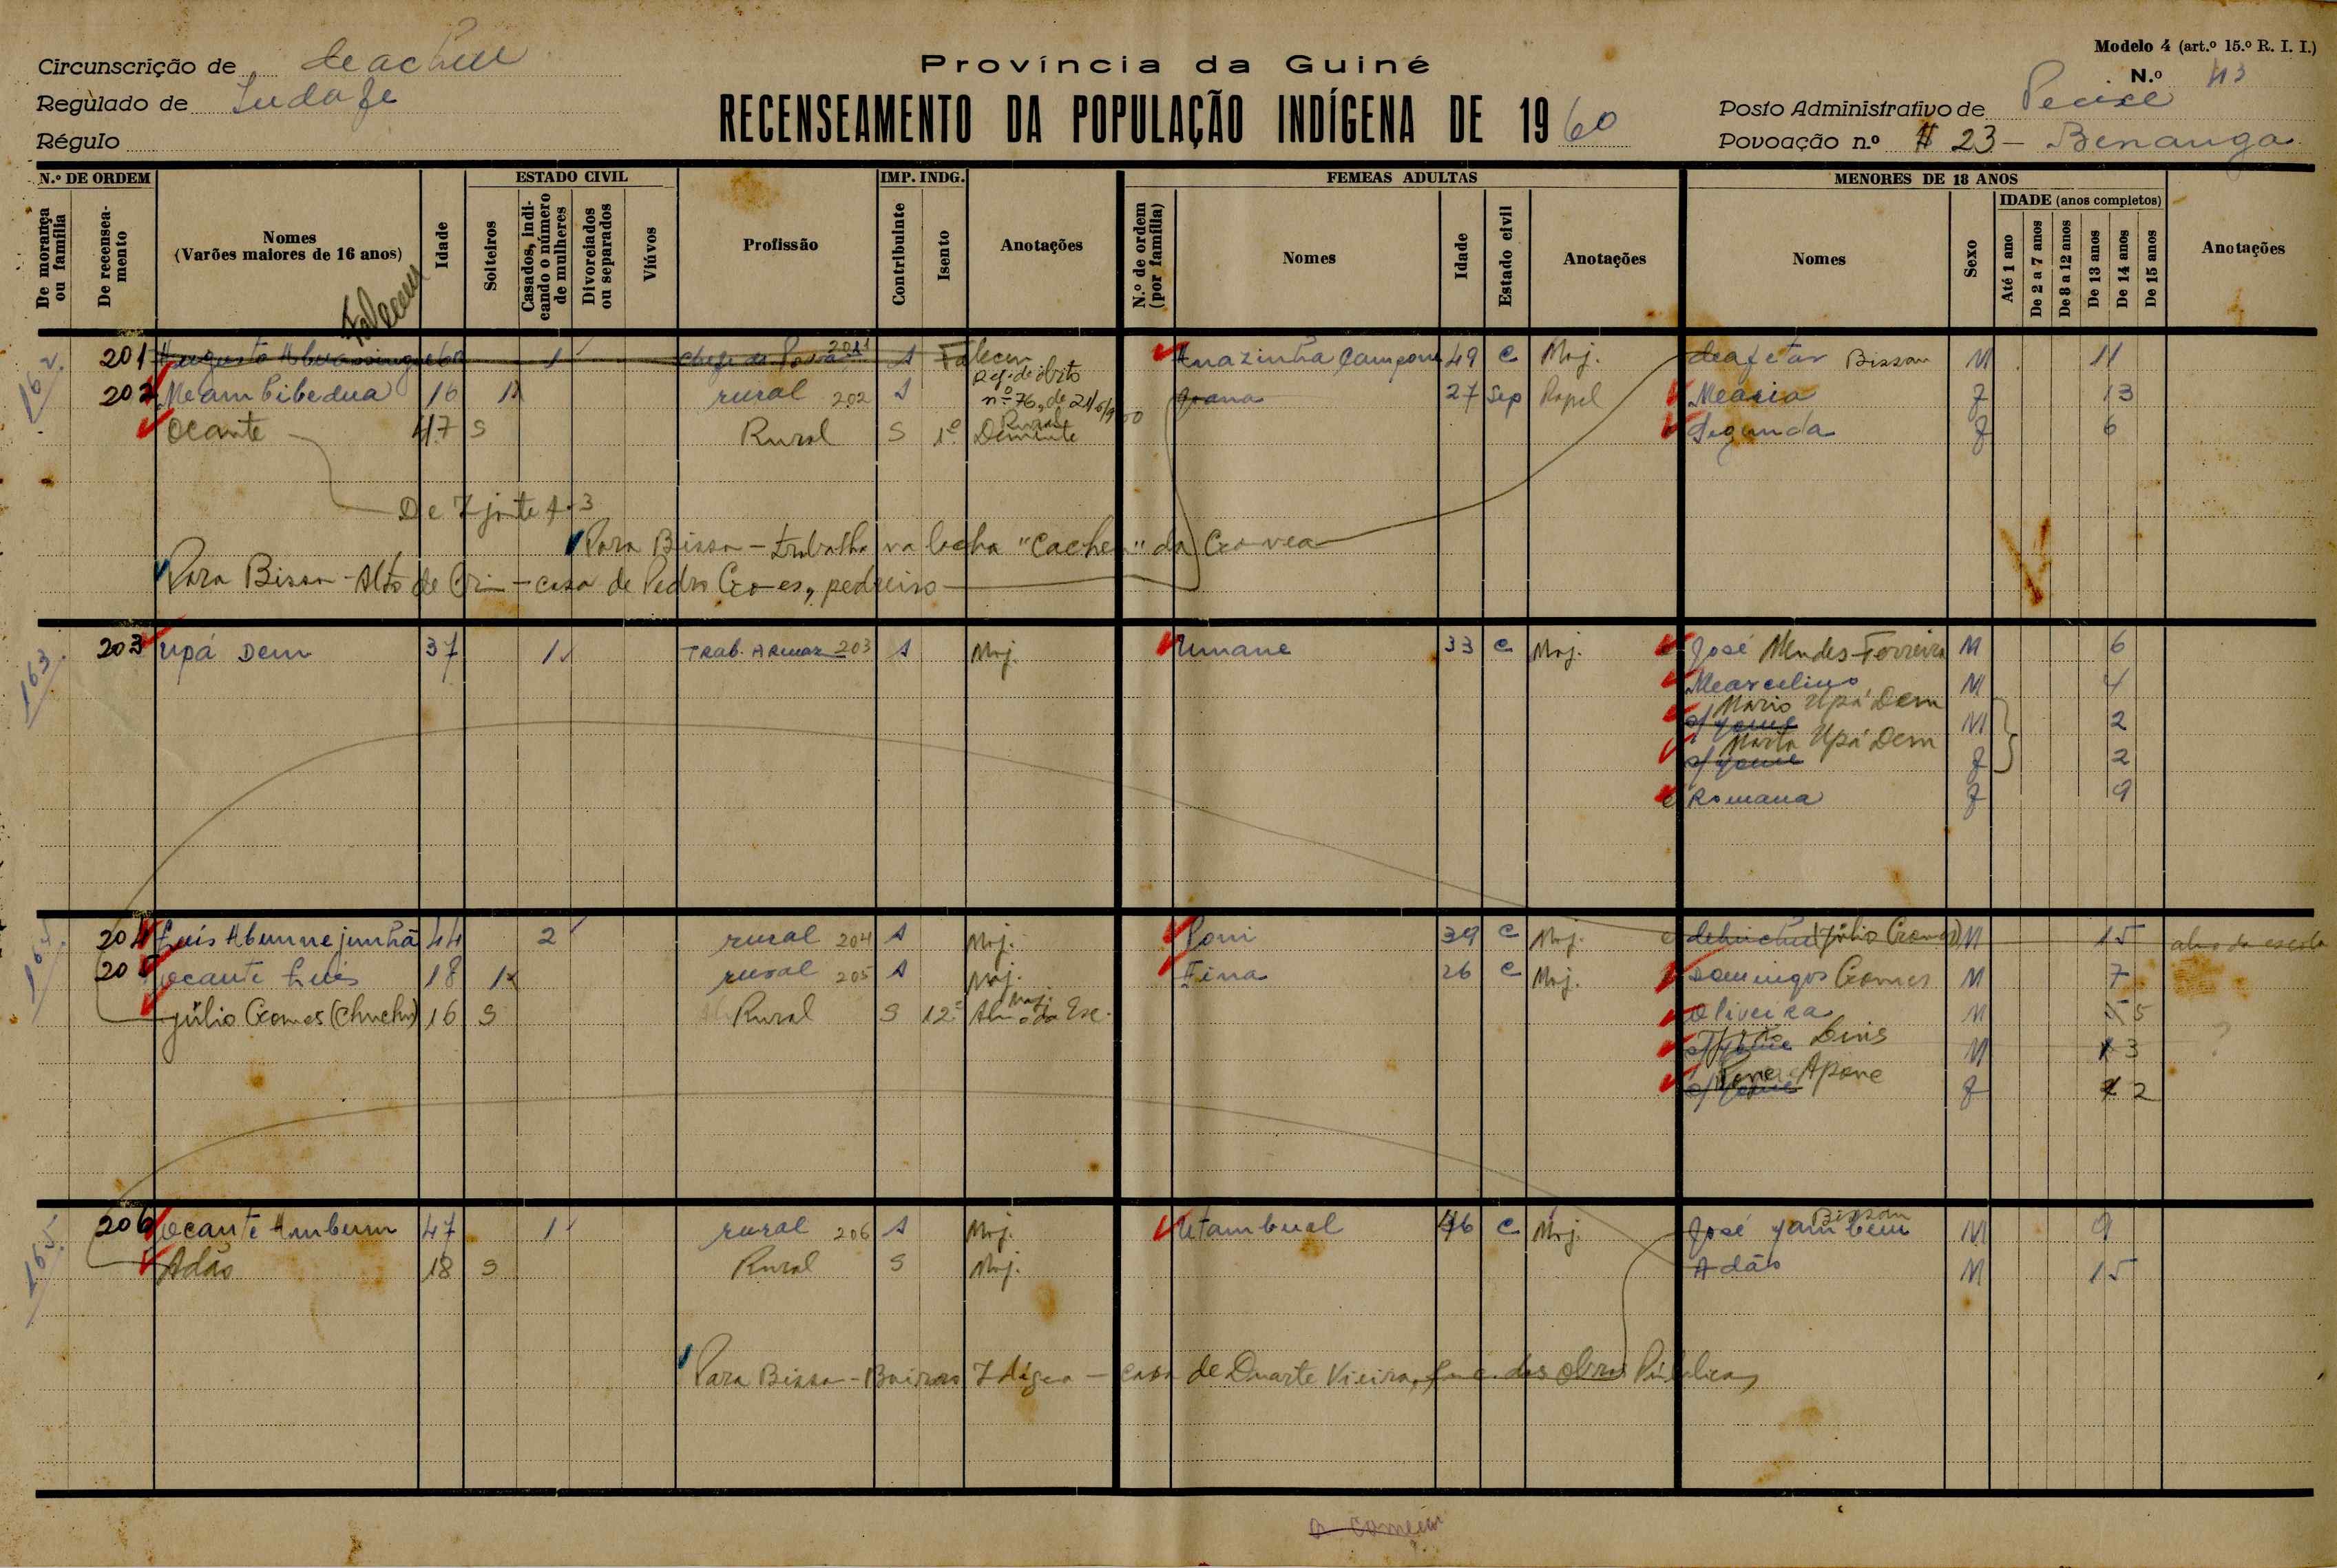 Modelo 4 (art.º 15.º R. I. I.)
Circunscrição de
Província da Guiné
N.º 43
Regulado de
RECENSEAMENTO DA POPULAÇÃO INDÍGENA DE 1960
Posto Administrativo de Pecixe
Régulo
Povoação n.º 23 - Benanga
N.º DE ORDEM
ESTADO CIVIL
IMP. INDG.
FEMEAS ADULTAS
MENORES DE 18 ANOS
De morança ou família
De recenseamento
Nomes (Varões maiores de 16 anos)
Idade
Solteiros
Casados, indicando o número de mulheres
Divorciados ou separados
Viúvos
Profissão
Contribuinte
Isento
Anotações
N.º de ordem (por família)
Nomes
Idade
Estado civil
Anotações
Nomes
Sexo
IDADE (anos completos)
Até 1 ano
De 2 a 7 anos
De 8 a 12 anos
De 13 anos
De 14 anos
De 15 anos
Anotações
Faleceu
162
201 Augusto 60 1 201 Faleceu 49 C Moj. Bissau M 11
Reg. de óbito
202 16 rural 202 nº 76, de Joana 27 Sep Papel Maria F 13
Ocante 47 S Rural S Rural Demente Segunda F 6
Para Bissau - trabalha na lancha "Cacheu" da Gouvea
Para Bissau - Alto de Crim - casa de Pedro Gomes, pedreiro
163
203 Upá Dem 37 1 Trab. Armaz 203 Moj. Umane 33 C Moj. José Mendes Ferreira M 6
Marcelino M 4
Mario Upá Dem
s/ nome M 2
Marta Upá Dem
s/ nome F 2
Romana F 9
204 Luís 44 2 rural 204 Moj. Poni 39 C Moj. (Júlio Gomes) M 15 aluno da escola
205 Ocante Luis 18 rural 205 Moj. Fina 26 C Moj. Domingos Gomes M 7
Júlio Gomes (Chuchu) 16 S Rural S Moj. Aluno da Esc. Oliveira M 5
Luis
s/ nome M 3
Apone
s/ nome F 2
165
206 Ocante Ambum 47 1 rural 206 Moj. Utambual 46 C Moj. José Bissau M 9
Adão 18 S Rural S Moj. Adão M 15
Para Bissau - Bairro - casa de Duarte Vieira, func. das Obras Públicas